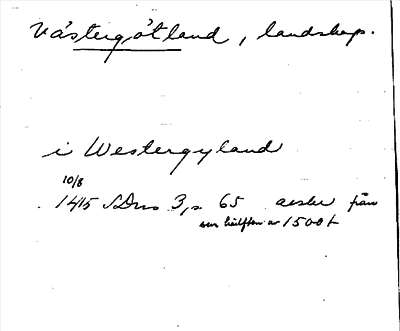 Västergötland, landskap.
i Westergyland
10/8
1415 SDns 3, s 65 avskr från
sen hälften av 1500t